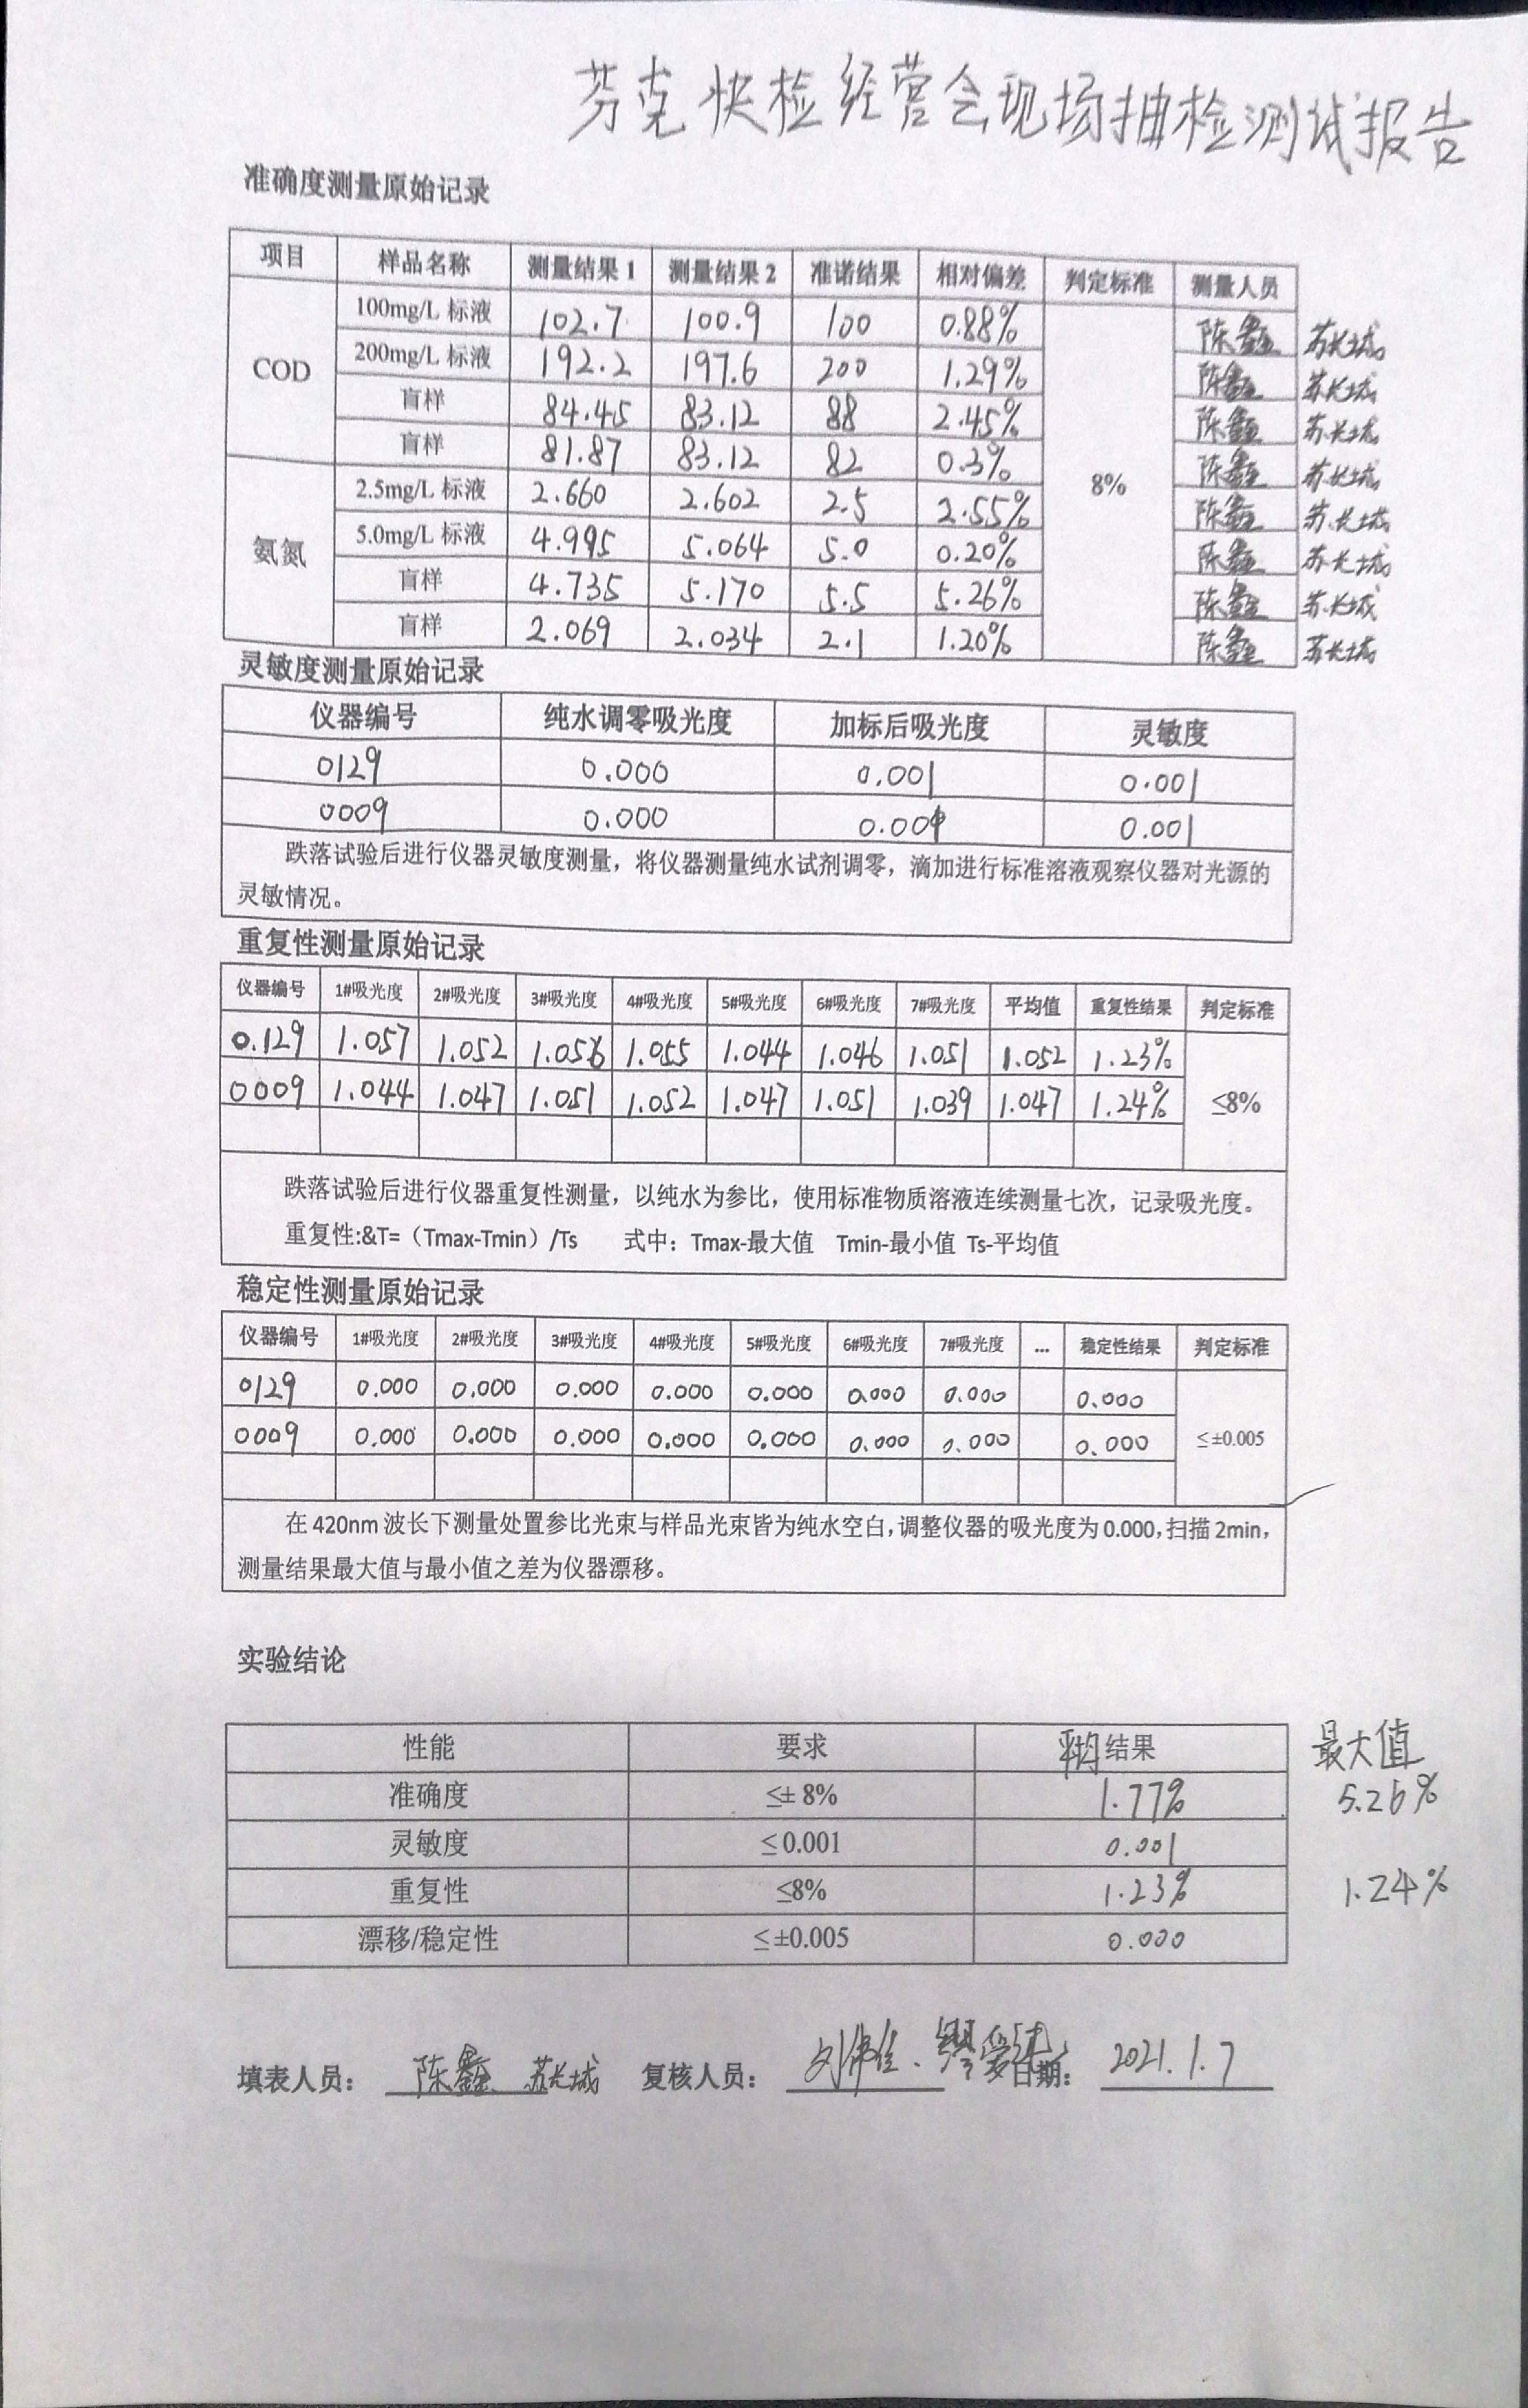 芬克快检经营会现场抽检测试报告
准确度测量原始记录
项目 样品名称 测量结果1 测量结果2 准诺结果 相对偏差 判定标准 测量人员
COD 100mg/L 标液 102.7 100.9 100 0.88% 8% 陈鑫 苏长城
200mg/L 标液 192.2 197.6 200 1.29% 陈鑫 苏长城
盲样 84.45 83.12 88 2.45% 陈鑫 苏长城
盲样 81.87 83.12 82 0.3% 陈鑫 苏长城
氨氮 2.5mg/L 标液 2.660 2.602 2.5 2.55% 陈鑫 苏长城
5.0mg/L 标液 4.995 5.064 5.0 0.20% 陈鑫 苏长城
盲样 4.735 5.170 5.5 5.26% 陈鑫 苏长城
盲样 2.069 2.034 2.1 1.20% 陈鑫 苏长城
灵敏度测量原始记录
仪器编号 纯水调零吸光度 加标后吸光度 灵敏度
0129 0.000 0.001 0.001
0009 0.000 0.001
跌落试验后进行仪器灵敏度测量，将仪器测量纯水试剂调零，滴加进行标准溶液观察仪器对光源的
灵敏情况。
重复性测量原始记录
仪器编号 1#吸光度 2#吸光度 3#吸光度 4#吸光度 5#吸光度 6#吸光度 7#吸光度 平均值 重复性结果 判定标准
0.129 1.057 1.052 1.056 1.055 1.044 1.046 1.051 1.052 1.23% ≤8%
0009 1.044 1.047 1.051 1.052 1.047 1.051 1.039 1.047 1.24%
跌落试验后进行仪器重复性测量，以纯水为参比，使用标准物质溶液连续测量七次，记录吸光度。
重复性:&T=（Tmax-Tmin）/Ts 式中：Tmax-最大值 Tmin-最小值 Ts-平均值
稳定性测量原始记录
仪器编号 1#吸光度 2#吸光度 3#吸光度 4#吸光度 5#吸光度 6#吸光度 7#吸光度 ... 稳定性结果 判定标准
0129 0.000 0.000 0.000 0.000 0.000 0.000 0.000 0.000 ≤±0.005
0009 0.000 0.000 0.000 0.000 0.000 0.000 0.000 0.000
在420nm波长下测量处置参比光束与样品光束皆为纯水空白，调整仪器的吸光度为0.000，扫描2min，
测量结果最大值与最小值之差为仪器漂移。
实验结论
性能 要求 平均结果 最大值
准确度 ≤±8% 1.77% 5.26%
灵敏度 ≤0.001 0.001
重复性 ≤8% 1.23% 1.24%
漂移/稳定性 ≤±0.005 0.000
填表人员： 陈鑫 苏长城 复核人员： 日期： 2021.1.7